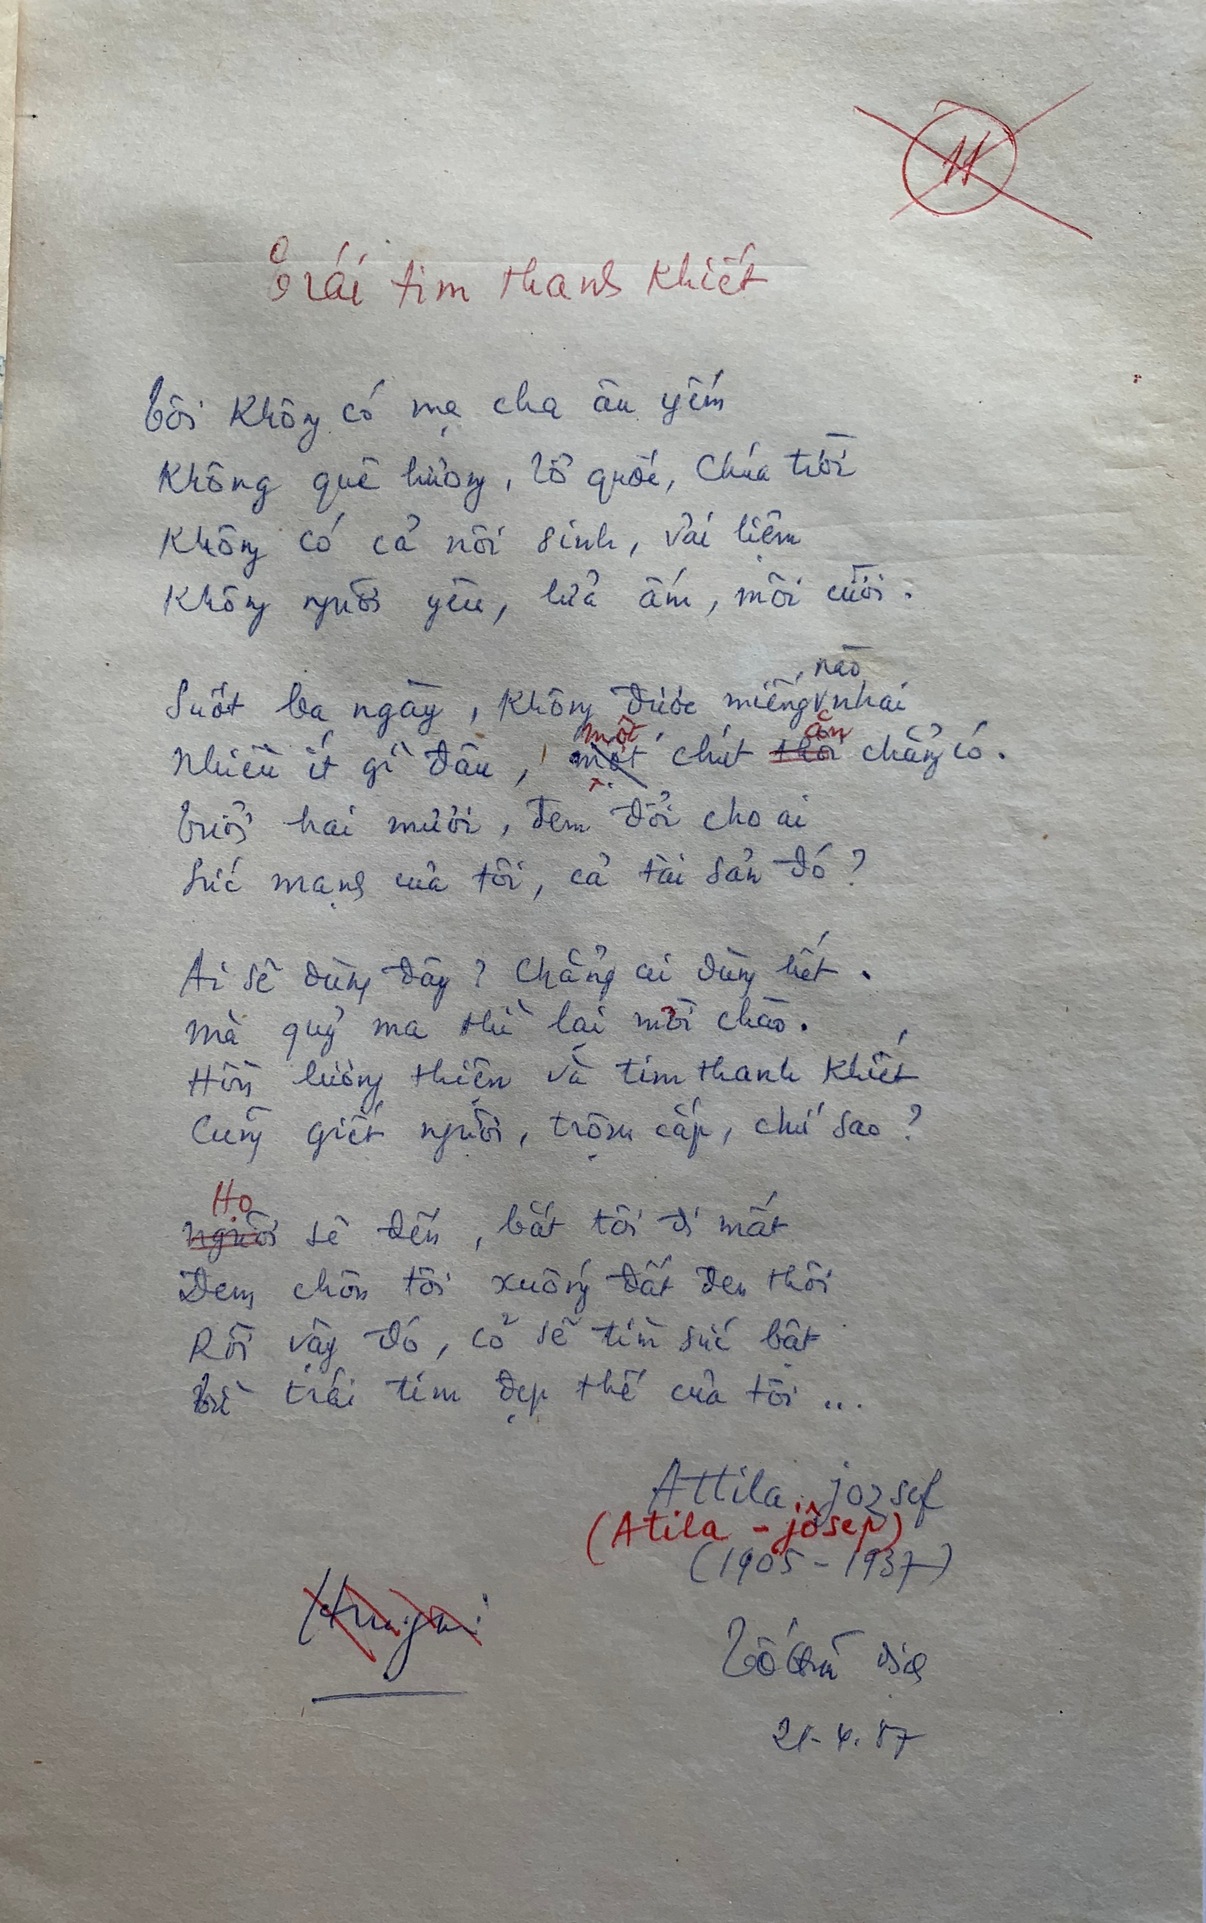 11
Trái tim thanh khiết
Tôi không có mẹ cha âu yếm
Không quê hương, Tổ quốc, Chúa trời
Không có cả nôi sinh, vải liệm
Không người yêu, lửa ấm, môi cười.
Suốt ba ngày, không được miếng nào nhai
Nhiều ít gì đâu, một chút ăn chẳng có.
Tuổi hai mươi, đem đổi cho ai
Sức mạnh của tôi, cả tài sản đó?
Ai sẽ dùng đây? Chẳng ai dùng hết.
Mà quỷ ma thì lại mời chào.
Hồn lương thiện và tim thanh khiết
Cũng giết người, trộm cắp, chứ sao?
Họ sẽ đến, bắt tôi đi mất
Đem chôn tôi xuống đất đen thôi
Rồi vậy đó, cỏ sẽ tìm sức bật
Từ trái tim đẹp thế của tôi ...
Attila józsef
(Atila - jôsep)
(1905 - 1937)
Tố Hữu dịch
21-4.87